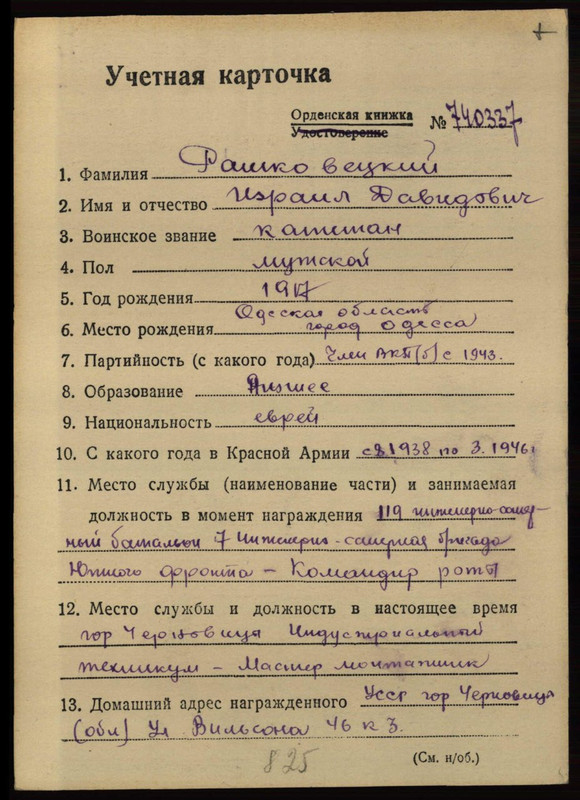 Учетная карточка
Орденская книжка
Удостоверение
№ 740337
1. Фамилия Рашковецкий
2. Имя и отчество Израил Давидович
3. Воинское звание капитан
4. Пол мужской
5. Год рождения 1917
Одесская область
6. Место рождения город Одесса
7. Партийность (с какого года) Член ВКП(б) с 1943.
8. Образование Низшее
9. Национальность еврей
10. С какого года в Красной Армии с 8.1938 по 3.1946г
11. Место службы (наименование части) и занимаемая
должность в момент награждения 119 инжерно-сапер-
ный батальон 7 Инжерно-саперная бригада
Южного фронта – Командир роты
12. Место службы и должность в настоящее время
гор Черновица Индустриальный
техникум – Мастер монтажник
13. Домашний адрес награжденного УССР гор Черновица
(обл) Ул Вильсона 46 к 3.
825
(См. н/об.)